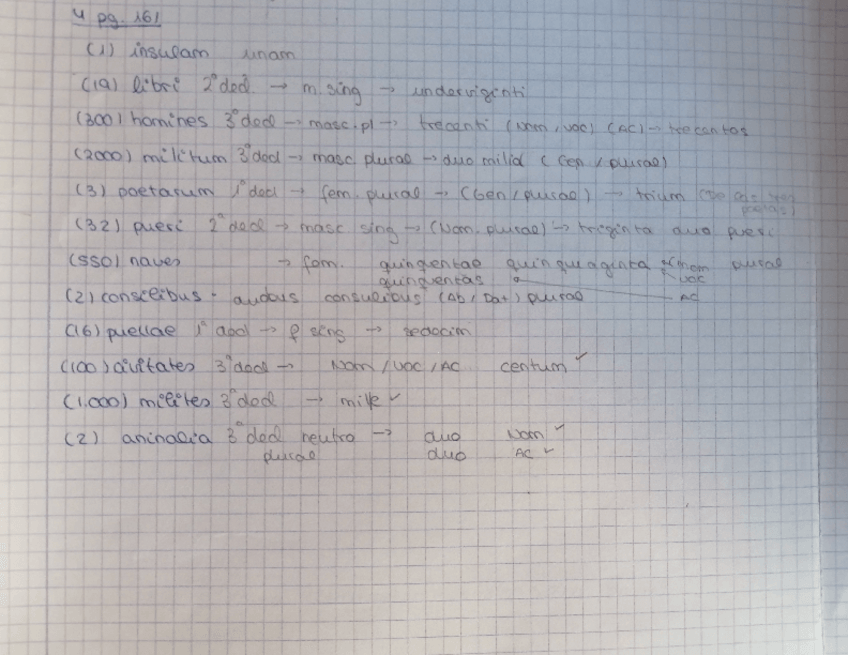 4 pg. 161
(1) insulam unam
(19) libri 2ª decl → m. sing → undeviginti
(300) homines 3ª decl → masc. pl → trecenti (Nom, voc) (AC) → trecentos
(2000) militum 3ª decl → masc plurae → duo milia (Gen / plurae)
(3) poetarum 1ª decl → fem. plurae → (Gen / plurae) → trium
(32) pueri 2ª decl → masc sing → (Nom. plurae) → triginta duo pueri
(550) naves → fem. quingentae quinquaginta nom plurae
quingentas voc
(2) consulibus - duobus consulibus (Ab / Dat) plurae AC
(16) puellae 1ª decl → f sing → sedecim
(100) civitates 3ª decl → Nom / voc / AC centum ✓
(1.000) milites 3ª decl → mille ✓
(2) animalia 3ª decl neutro → duo Nom ✓
plurae duo AC ✓